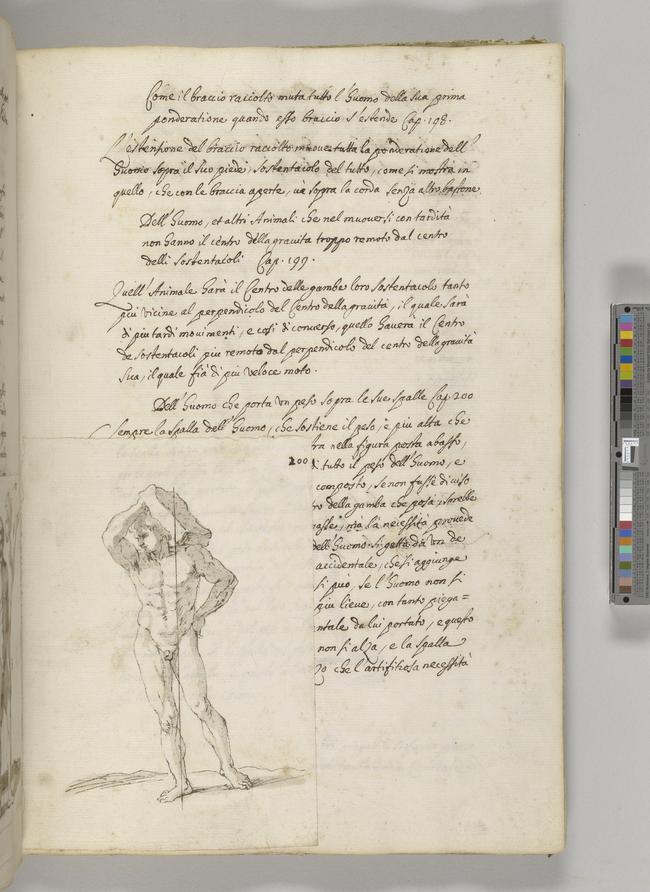 Come il braccio raccolto muta tutto l'Huomo della sua prima
ponderatione quando esso braccio s'estende Cap. 198.
L'estensione del braccio raccolto muove tutta la ponderatione dell'
Huomo sopra il suo piede, sostentacolo del tutto, come si mostra in
quello, che con le braccia aperte, và sopra la corda senza altro bastone.
Dell'Huomo, et altri Animali che nel muoversi con tardità
non hanno il cèntro della gravita troppo remoto dal centro
delli sostentacoli Cap. 199.
Quell'Animale harà il Centro delle gambe loro sostentacolo tanto
più vicine al perpendicolo del Centro della gravità, il quale sarà
di più tardi movimenti, e così di converso, quello haverà il Centro
de sostentacoli più remoto dal perpendicolo del centro della gravità
sua, il quale fia di più veloce moto.
Dell'Huomo che porta un peso sopra le sue spalle Cap. 200
Sempre la spalla dell'Huomo, che sostiene il peso, è più alta che
tra nella figura posta abasso,
200
di tutto il peso dell'Huomo, e
composto, se non fusse diviso
della gamba che posa, sarebbe
mà la necessità provede
dell'Huomo si getta da un de
accidentale, che si aggiunge
si può, se l'Huomo non si
più lieve, con tanto piega=
ntale da lui portato, e questo
non si alza, e la spalla
che l'artifitiosa necessità